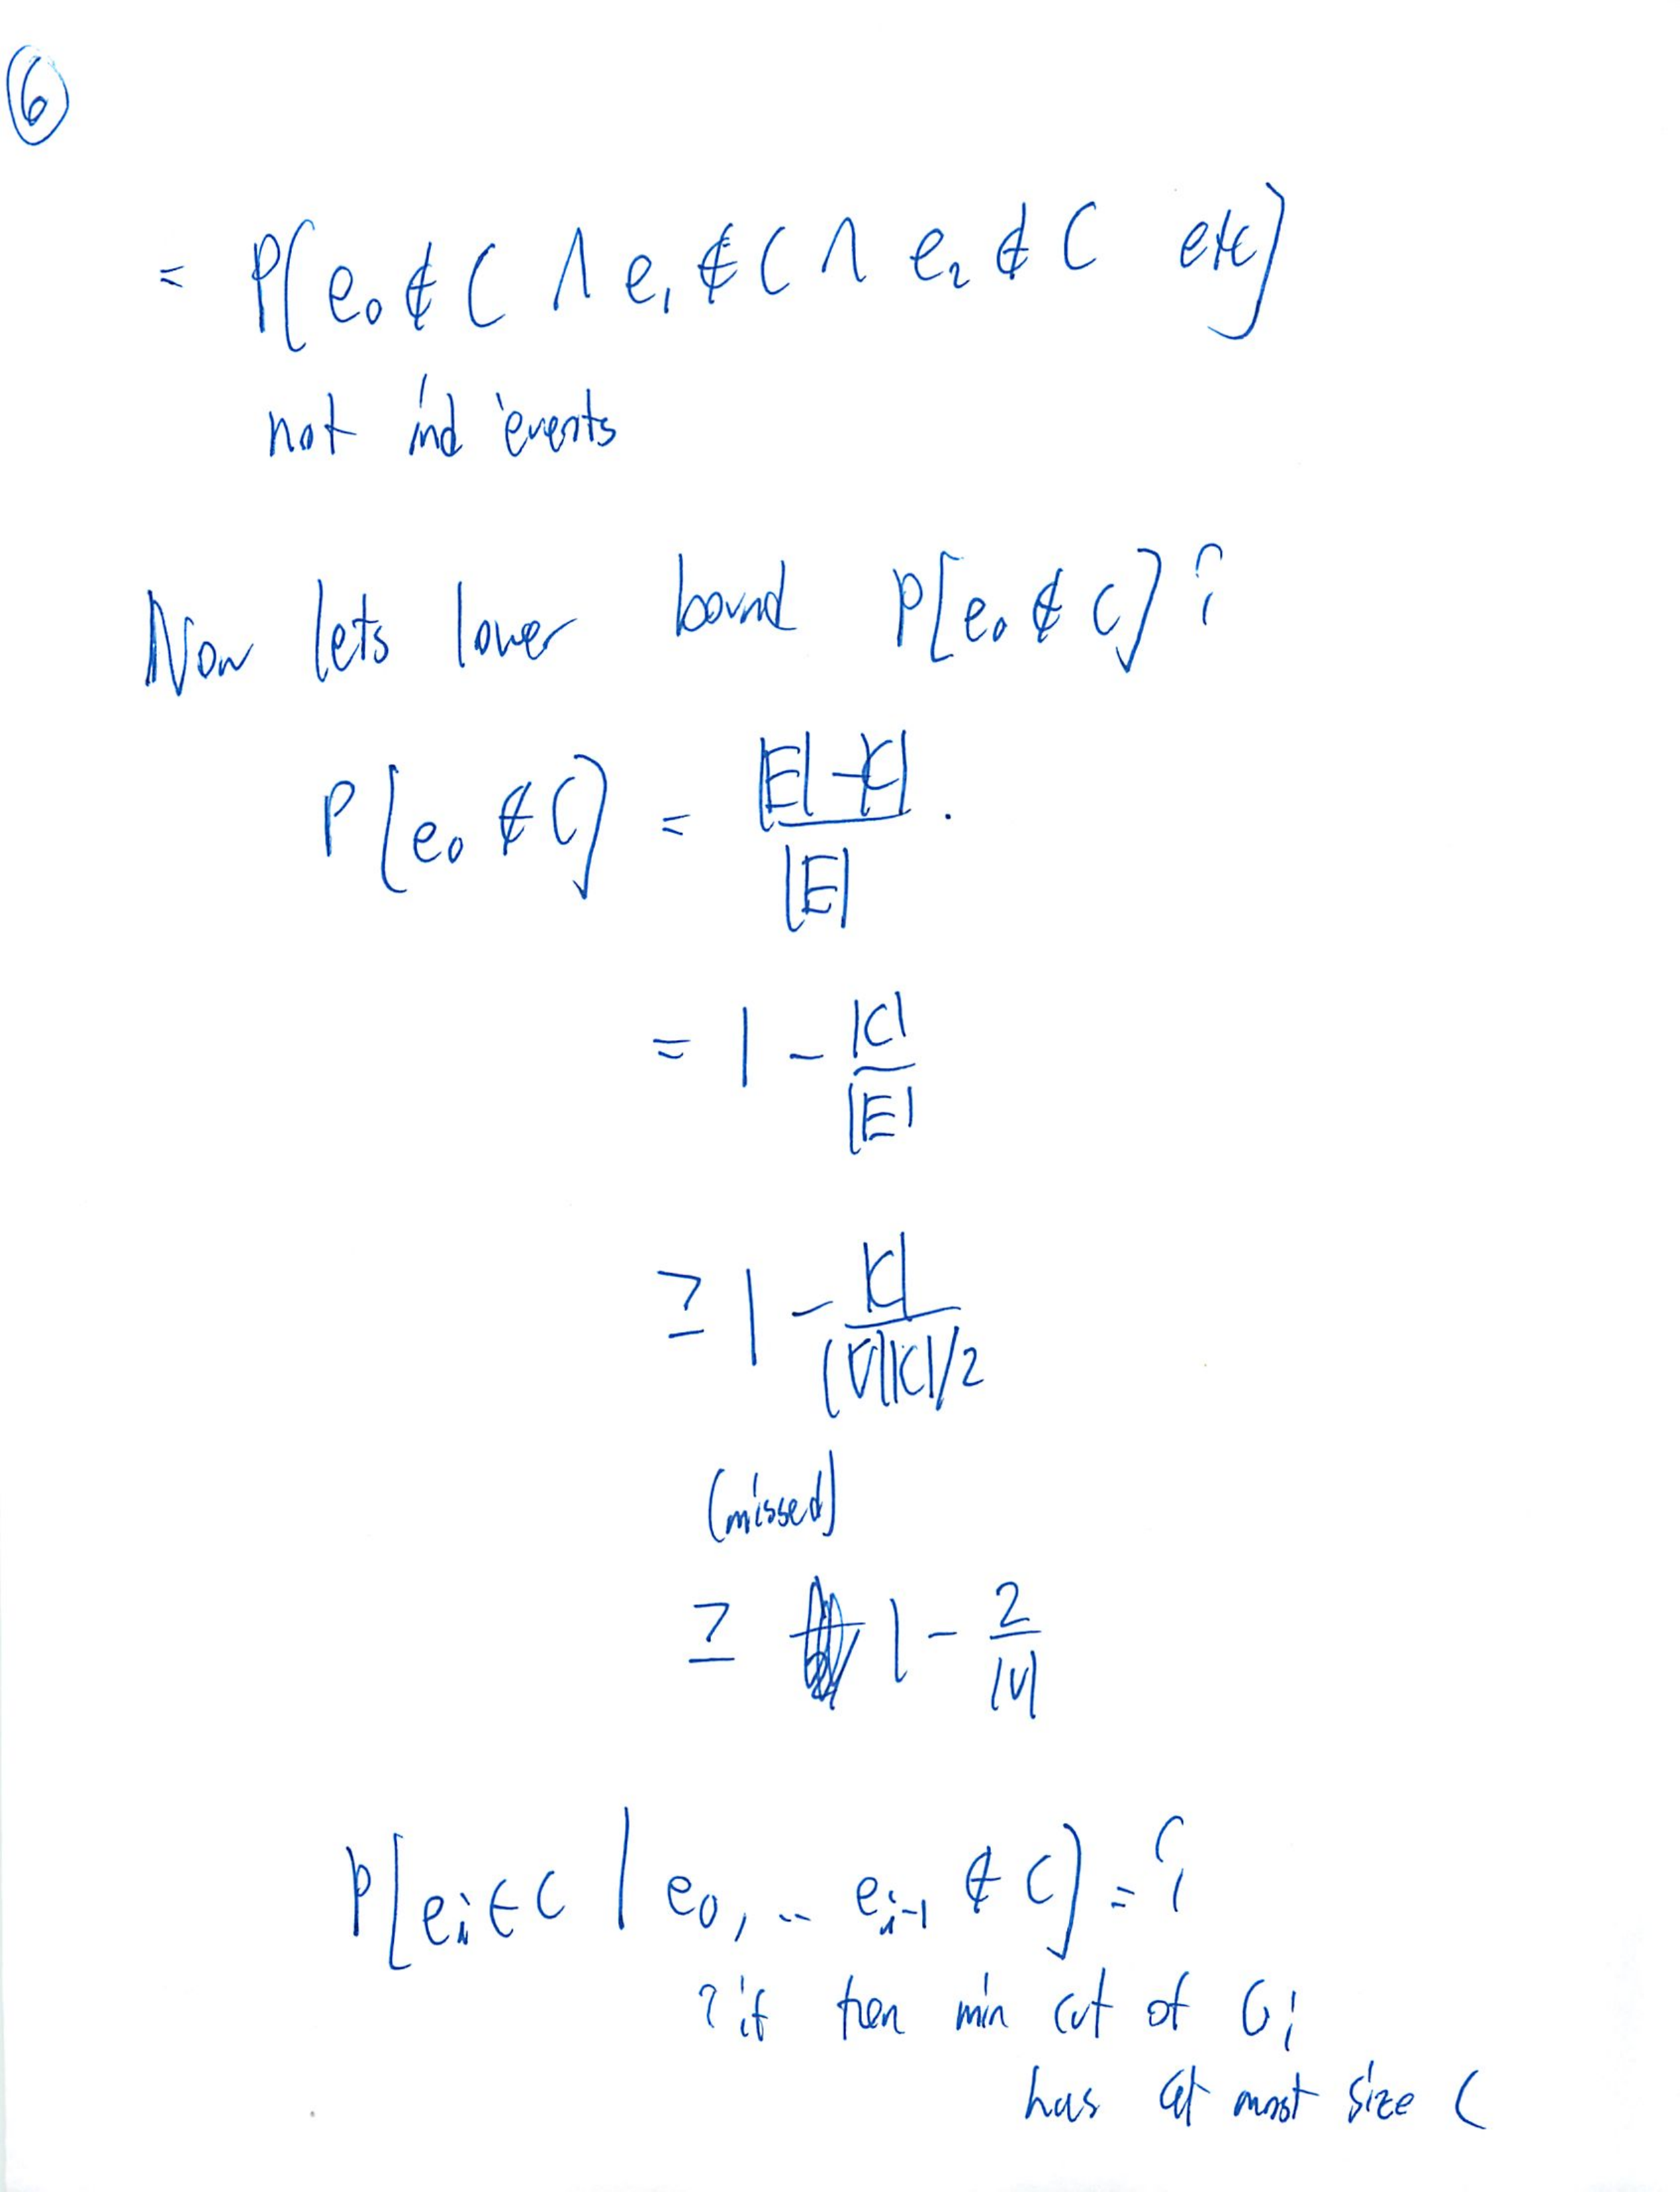 6
= P[e₀ ∉ C ∧ e₁ ∉ C ∧ e₂ ∉ C etc]
not ind events
Now lets lower bound P[e₀ ∉ C] ?
P[e₀ ∉ C] = |E|-|C| / |E| .
= 1 - |C| / |E|
≥ 1 - |C| / (|V||C|/2
(missed)
≥ 1 - 2 / |V|
P[eᵢ ∈ C | e₀, .. eᵢ₋₁ ∉ C] = ?
? if then min cut of Gᵢ
has at most size C